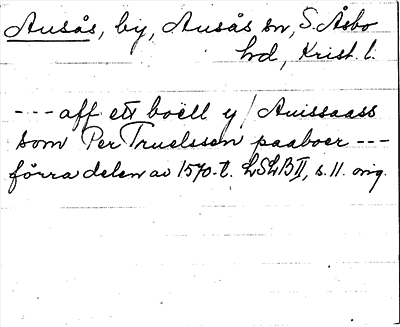 Ausås, by, Ausås sn, S. Åsbo
hd, Krist. l.
--- aff ett boell y / Auissaass
som Per Truelssen paaboer ---
förra delen av 1570-t. LSLB II, s. 11. orig.